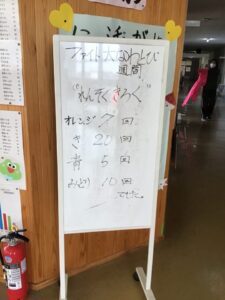 ファイト大なわとび
週間
"れんぞくきろく"
オレンジ 7 回
き 20 回
青 5 回
みどり 10 回
でした。